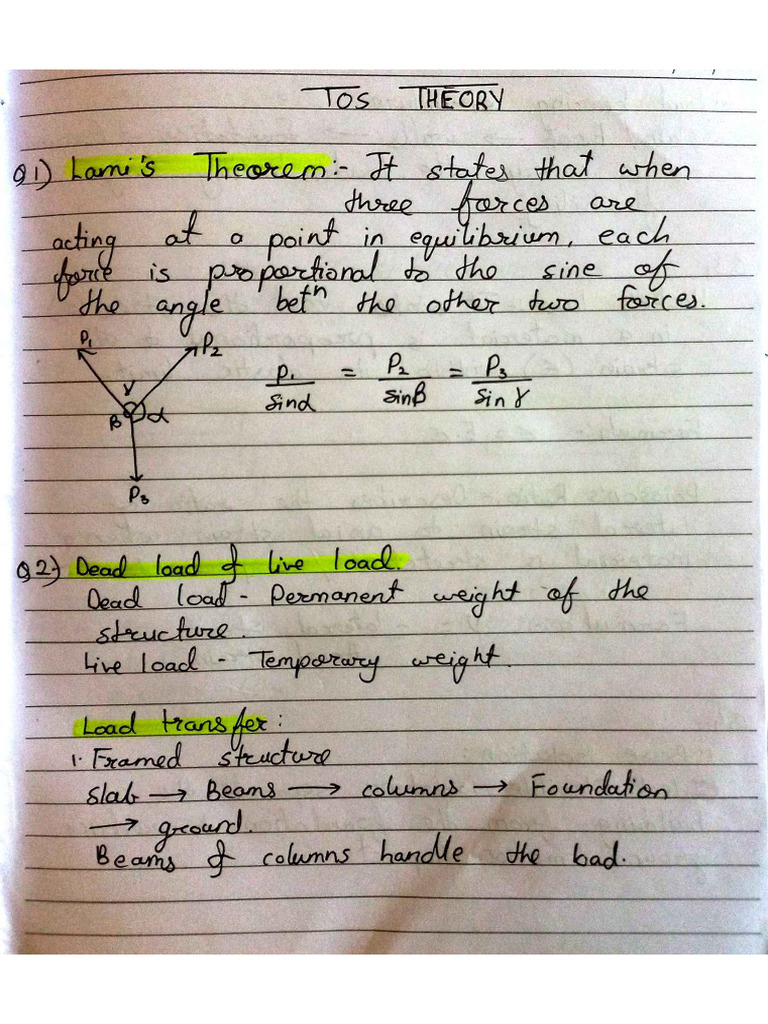 TOS THEORY
Q1) Lami's Theorem:- It states that when
three forces are
acting at a point in equilibrium, each
force is proportional to the sine of
the angle betⁿ the other two forces.
P1 P2
γ
β α
P3
P1/sinα = P2/sinβ = P3/sinγ
Q2-) Dead load & live load.
Dead load - Permanent weight of the
structure.
Live load - Temporary weight.
Load transfer:
1. Framed structure
Slab → Beams → columns → Foundation
→ ground.
Beams & columns handle the load.